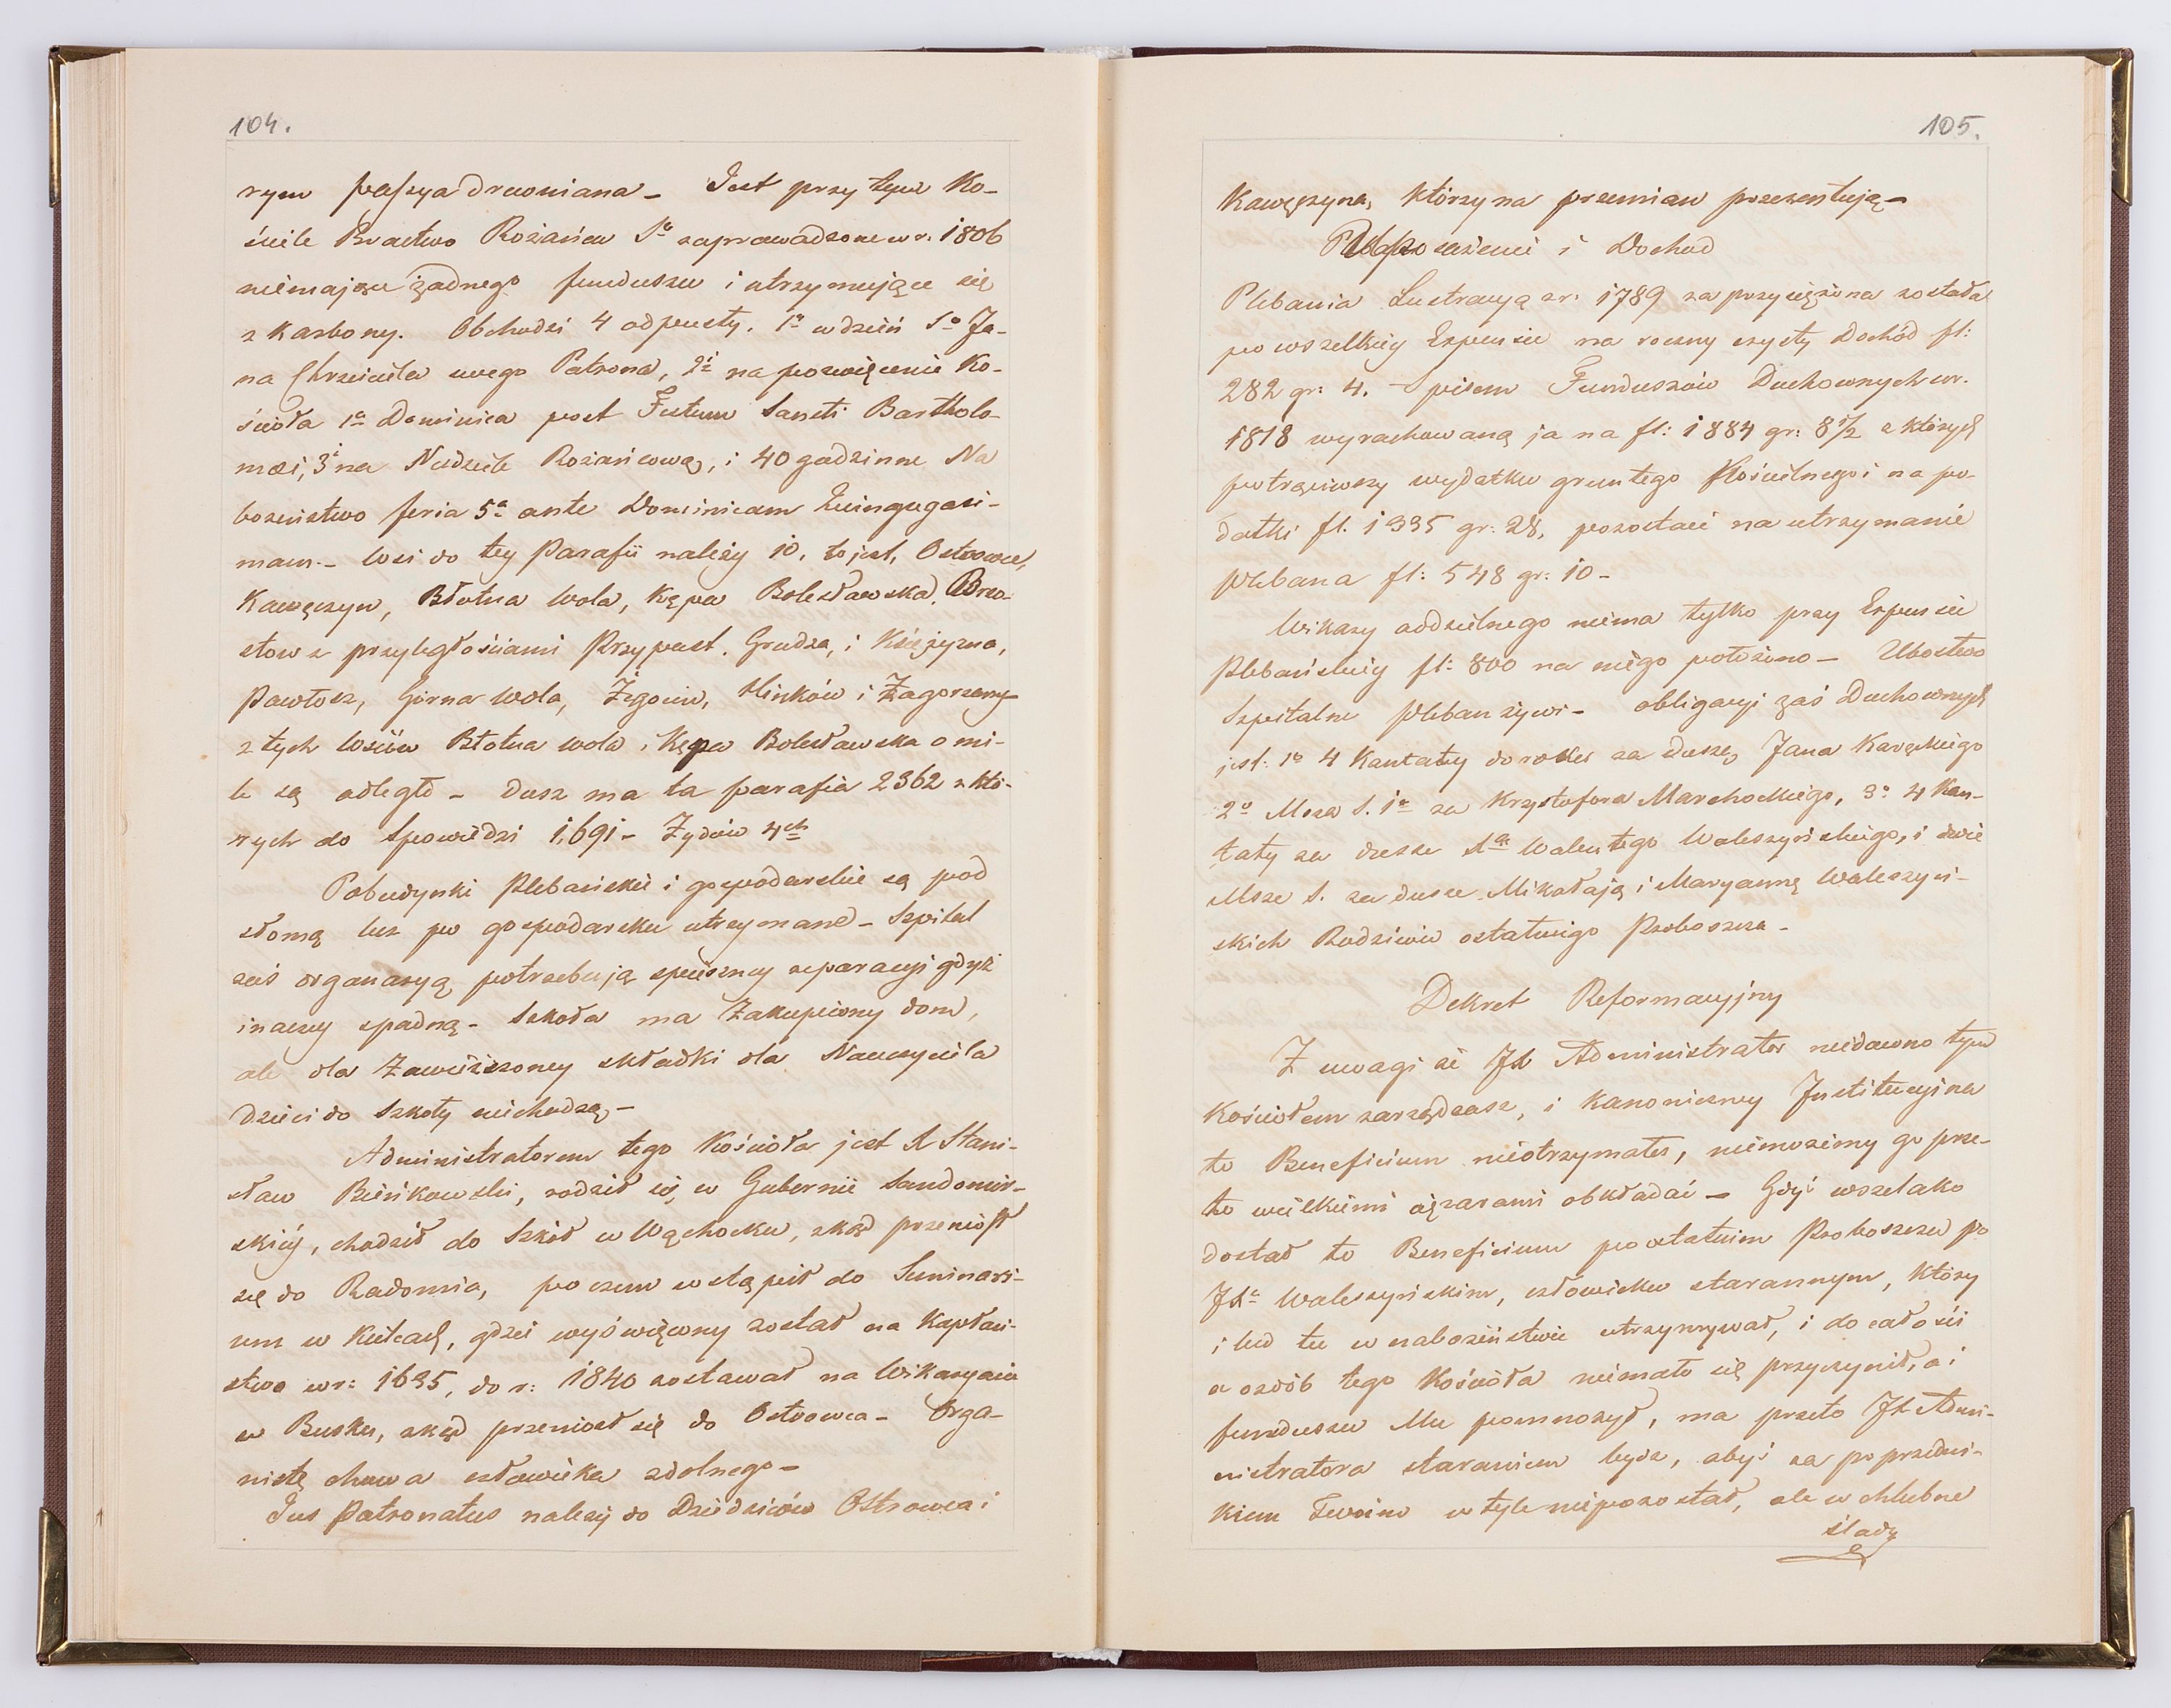 104.
rym passya drewniana – Jest przy tym Ko-
ściele Bractwo Rożańca Sº zaprowadzone w r. 1806
niemające żadnego funduszu i utrzymujące się
z Karbony. Obchodzi 4 odpusty. 1º w dzień Sº Ja-
na Chrzciciela swego Patrona, 2i na poswięcenie Ko-
ścioła 1ª Dominica post Festum Sancti Bartholo-
mæi, 3i na Niedziele Rożańcową, i 40 godzinne Na
bozeństwo feria 5ª ante Dominicam Quinquagesi-
mam. – Wsi do tey Parafii należy 10, to jest, Ostrowce,
Kawęczyn, Błotna Wola, Kępa Bolesławska, Brzo-
stow z przyległościami Przypust, Grudza, i Księżyzna,
Pawłosz, Górna Wola, Żegocin, Hinków i Zagorzany
z tych Wsiów Błotna wola, Kępa Bolesławska o mi-
le są odległe – Dusz ma ta parafia 2362 z któ-
rych do Spowiedzi 1,691 – Żydów 4ch
Pobudynki Plebańskie i gospodarskie są pod
słomą lecz po gospodarsku utrzymane – Szpital
zaś organaryą potrzebują spieszney reparacyi gdyż
inaczey spadną – Szkoła ma Zakupiony dom,
ale dla Zawieszoney składki dla Nauczyciela
dzieci do Szkoły niechodzą –
Administratorem tego Kościoła jest X Stani-
sław Bieńkowski, rodził się w Gubernii Sandomir-
skiéj, chodził do Szkół w Wąchocku, zkąd przeniósł
się do Radomia, poczem wstąpił do Seminari-
um w Kielcach, gdzie wyświęcony został na Kapłań-
stwo w r: 1835, do r: 1840 zostawał na Wikaryacie
w Busku, zkąd przeniosł się do Ostrowca – Orga-
nistę chowa człowieka zdolnego –
Jus Patronatus należy do Dziedziców Ostrowca i
105.
Kawęczyna, którzy na przemian prezentują –
Uposażenie i Dochod
Plebania Lustracyą z r: 1789 zaprzysiężona została
po wszelkiey Expensie na roczny czysty Dochód fl:
282 gr: 4. – Spisem Funduszów Duchownych w r.
1818 wyrachowaną ja na fl: 1884 gr: 8½ z których
potrąciwszy wydatku gruntego Kościelnego i na po-
datki fl. 1335 gr: 28, pozostaie na utrzymanie
Plebana fl: 548 gr: 10 –
Wikary oddzielnego niema tylko przy Expensie
Plebańskiey fl: 800 na niego położono – Ubostwo
Szpitalne Pleban żywi – obligacyi zaś Duchownych
jest: 1º 4 Kantaty do roku za duszę Jana Karęckiego
2º Msza S. 1ª za Krzysztofora Marchockiego, 3º 4 Kan-
taty za dusze Xa Walentego Waleszyńskiego, i dwie
Msze S. za dusze Mikołaja i Maryannę Waleszyń-
skich Rodziców ostatniego Proboszcza –
Dekret Reformacyjny
Z uwagi że JX Administrator niedawno tym
Kościołem zarządzasz, i kanoniczney Institucyi na
to Beneficium nieotrzymałes, niemożemy go prze-
to wielkiemi ciężarami obkładać – Gdyż wszelako
dostał to Beneficium po ostatnim Proboszczu po
JXe Waleszyńskim, człowieku starannym, który
i lud tu w nabożeństwie utrzymywał, i do całości
a ozdób tego Kościoła niemało się przyczynił, a i
funduszu Mu pomnożył, ma przeto JX Admi-
nistratora staraniem bydz, abyś za poprzedni-
kiem Twoim w tyle niepozostał, ale w chlubne
ślady